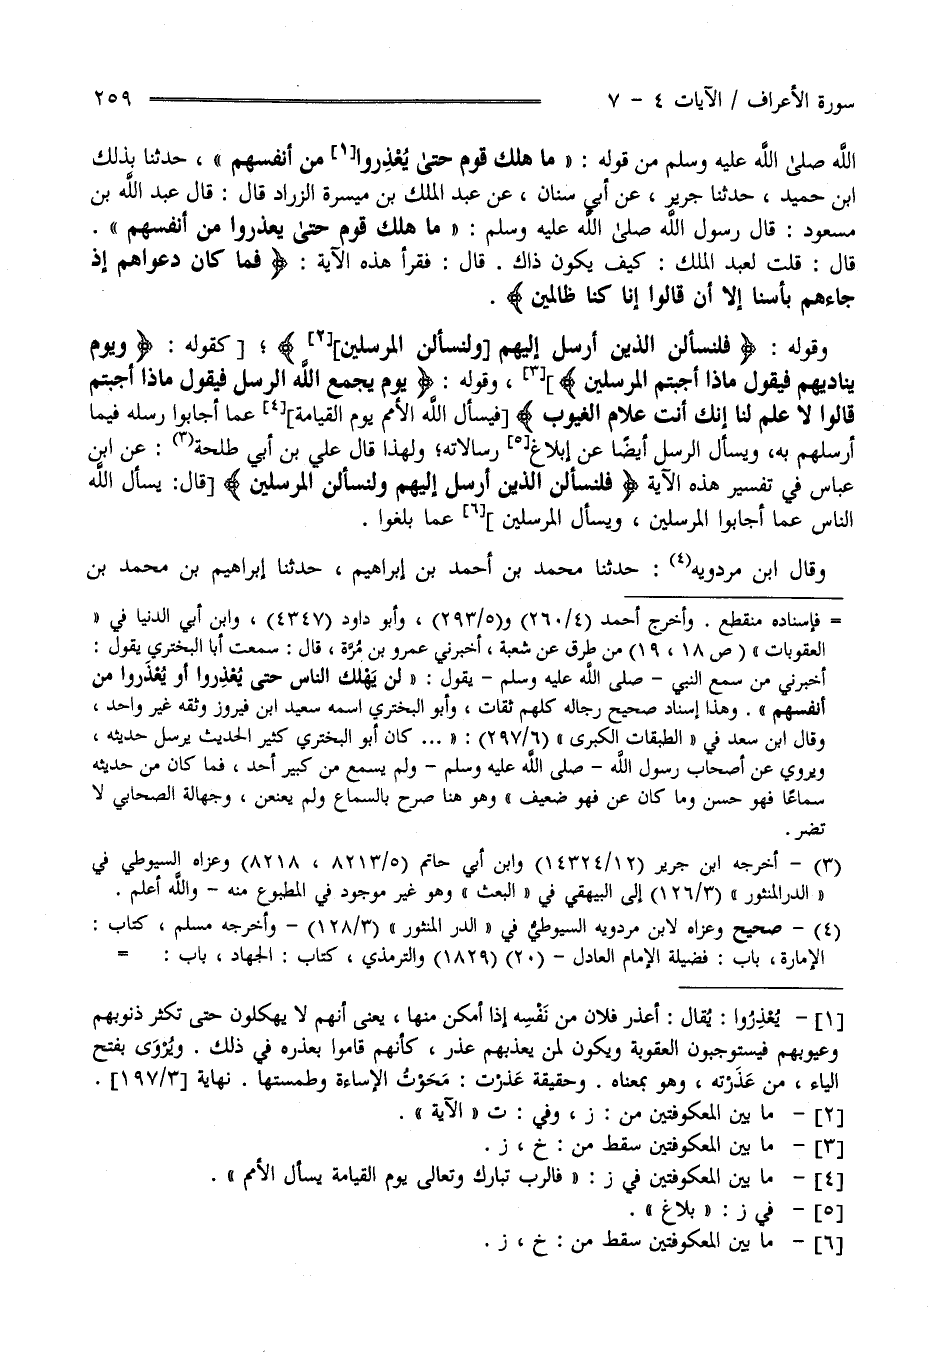 سورة الأعراف / الآيات ٤ - ٧ ٢٥٩
اللَّه صلىٰ اللَّه عليه وسلم من قوله : « ما هلك قوم حتىٰ يُعْذِروا[١] من أنفسهم » ، حدثنا بذلك
ابن حميد ، حدثنا جرير ، عن أبي سنان ، عن عبد الملك بن ميسرة الزراد قال : قال عبد اللَّه بن
مسعود : قال رسول اللَّه صلىٰ اللَّه عليه وسلم : « ما هلك قوم حتىٰ يعذروا من أنفسهم » .
قال : قلت لعبد الملك : كيف يكون ذاك . قال : فقرأ هذه الآية : ﴿ فما كان دعواهم إذ
جاءهم بأسنا إلا أن قالوا إنا كنا ظالمين ﴾ .
وقوله : ﴿ فلنسألن الذين أرسل إليهم [ولنسألن المرسلين][٢] ﴾ ؛ [ كقوله : ﴿ ويوم
يناديهم فيقول ماذا أجبتم المرسلين ﴾ ][٣] ، وقوله : ﴿ يوم يجمع اللَّه الرسل فيقول ماذا أجبتم
قالوا لا علم لنا إنك أنت علام الغيوب ﴾ [فيسأل اللَّه الأمم يوم القيامة][٤] عما أجابوا رسله فيما
أرسلهم به، ويسأل الرسل أيضًا عن إبلاغ[٥] رسالاته؛ ولهذا قال علي بن أبي طلحة(٣) : عن ابن
عباس في تفسير هذه الآية ﴿ فلنسألن الذين أرسل إليهم ولنسألن المرسلين ﴾ [قال: يسأل اللَّه
الناس عما أجابوا المرسلين ، ويسأل المرسلين ][٦] عما بلغوا .
وقال ابن مردويه(٤) : حدثنا محمد بن أحمد بن إبراهيم ، حدثنا إبراهيم بن محمد بن
= فإسناده منقطع . وأخرج أحمد (٢٦٠/٤) و(٢٩٣/٥) ، وأبو داود (٤٣٤٧) ، وابن أبي الدنيا في «
العقوبات » ( ص ١٨ ، ١٩) من طرق عن شعبة ، أخبرني عمرو بن مُرَّة ، قال : سمعت أبا البختري يقول :
أخبرني من سمع النبي - صلى اللَّه عليه وسلم - يقول : « لن يَهْلك الناس حتى يُعْذِروا أو يُعْذَروا من
أنفسهم » . وهذا إسناد صحيح رجاله كلهم ثقات ، وأبو البختري اسمه سعيد ابن فيروز وثقه غير واحد ،
وقال ابن سعد في « الطبقات الكبرى » (٢٩٧/٦) : « ... كان أبو البختري كثير الحديث يرسل حديثه ،
ويروي عن أصحاب رسول اللَّه - صلى اللَّه عليه وسلم - ولم يسمع من كبير أحد ، فما كان من حديثه
سماعًا فهو حسن وما كان عن فهو ضعيف » وهو هنا صرح بالسماع ولم يعنعن ، وجهالة الصحابي لا
تضر .
(٣) - أخرجه ابن جرير (١٤٣٢٤/١٢) وابن أبي حاتم (٨٢١٣/٥ ، ٨٢١٨) وعزاه السيوطي في
« الدرالمنثور » (١٢٦/٣) إلى البيهقي في « البعث » وهو غير موجود في المطبوع منه - واللَّه أعلم .
(٤) - صحيح وعزاه لابن مردويه السيوطيُّ في « الدر المنثور » (١٢٨/٣) - وأخرجه مسلم ، كتاب :
الإمارة ، باب : فضيلة الإمام العادل - (٢٠) (١٨٢٩) والترمذي ، كتاب : الجهاد ، باب : =
[١] - يُعْذِرُوا : يُقال : أعذر فلان من نَفْسِه إذا أمكن منها ، يعنى أنهم لا يهكلون حتى تكثر ذنوبهم
وعيوبهم فيستوجبون العقوبة ويكون لمن يعذبهم عذر ، كأنهم قاموا بعذره في ذلك . ويُرْوَى بفتح
الياء ، من عَذَرْته ، وهو بمعناه . وحقيقة عَذَرْت : مَحَوْتُ الإساءة وطمستها . نهاية [١٩٧/٣] .
[٢] - ما بين المعكوفتين من : ز ، وفي : ت « الآية » .
[٣] - ما بين المعكوفتين سقط من : خ ، ز .
[٤] - ما بين المعكوفتين في ز : « فالرب تبارك وتعالى يوم القيامة يسأل الأمم » .
[٥] - في ز : « بلاغ » .
[٦] - ما بين المعكوفتين سقط من : خ ، ز .